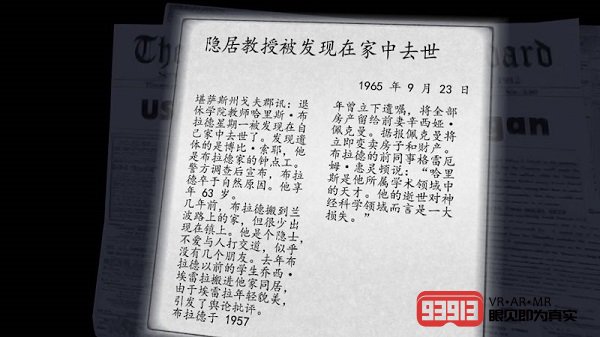 The
ard
us
gan
隐居教授被发现在家中去世
1965 年 9 月 23 日
堪萨斯州戈夫郡讯：退
休学院教师哈里斯·布
拉德星期一被发现在自
己家中去世了。发现遗
体的是博比·索耶，他
是布拉德家的钟点工。
警方调查后宣布，布拉
德卒于自然原因。他享
年 63 岁。
几年前，布拉德搬到兰
波路上的家，但很少出
现在镇上。他是个隐士，
不爱与人打交道，似乎
没有几个朋友。去年布
拉德以前的学生乔西·
埃雷拉搬进他家同居，
由于埃雷拉年轻貌美，
引发了舆论批评。
布拉德于 1957
年曾立下遗嘱，将全部
房产留给前妻辛西娅·
佩克曼。据报佩克曼将
立即变卖房子和财产。
布拉德的前同事格雷厄
姆·惠灵顿说：“哈里
斯是他所属学术领域中
的天才。他的逝世对神
经科学领域而言是一大
损失。”
93913
VR·AR·MR
眼见即为真实